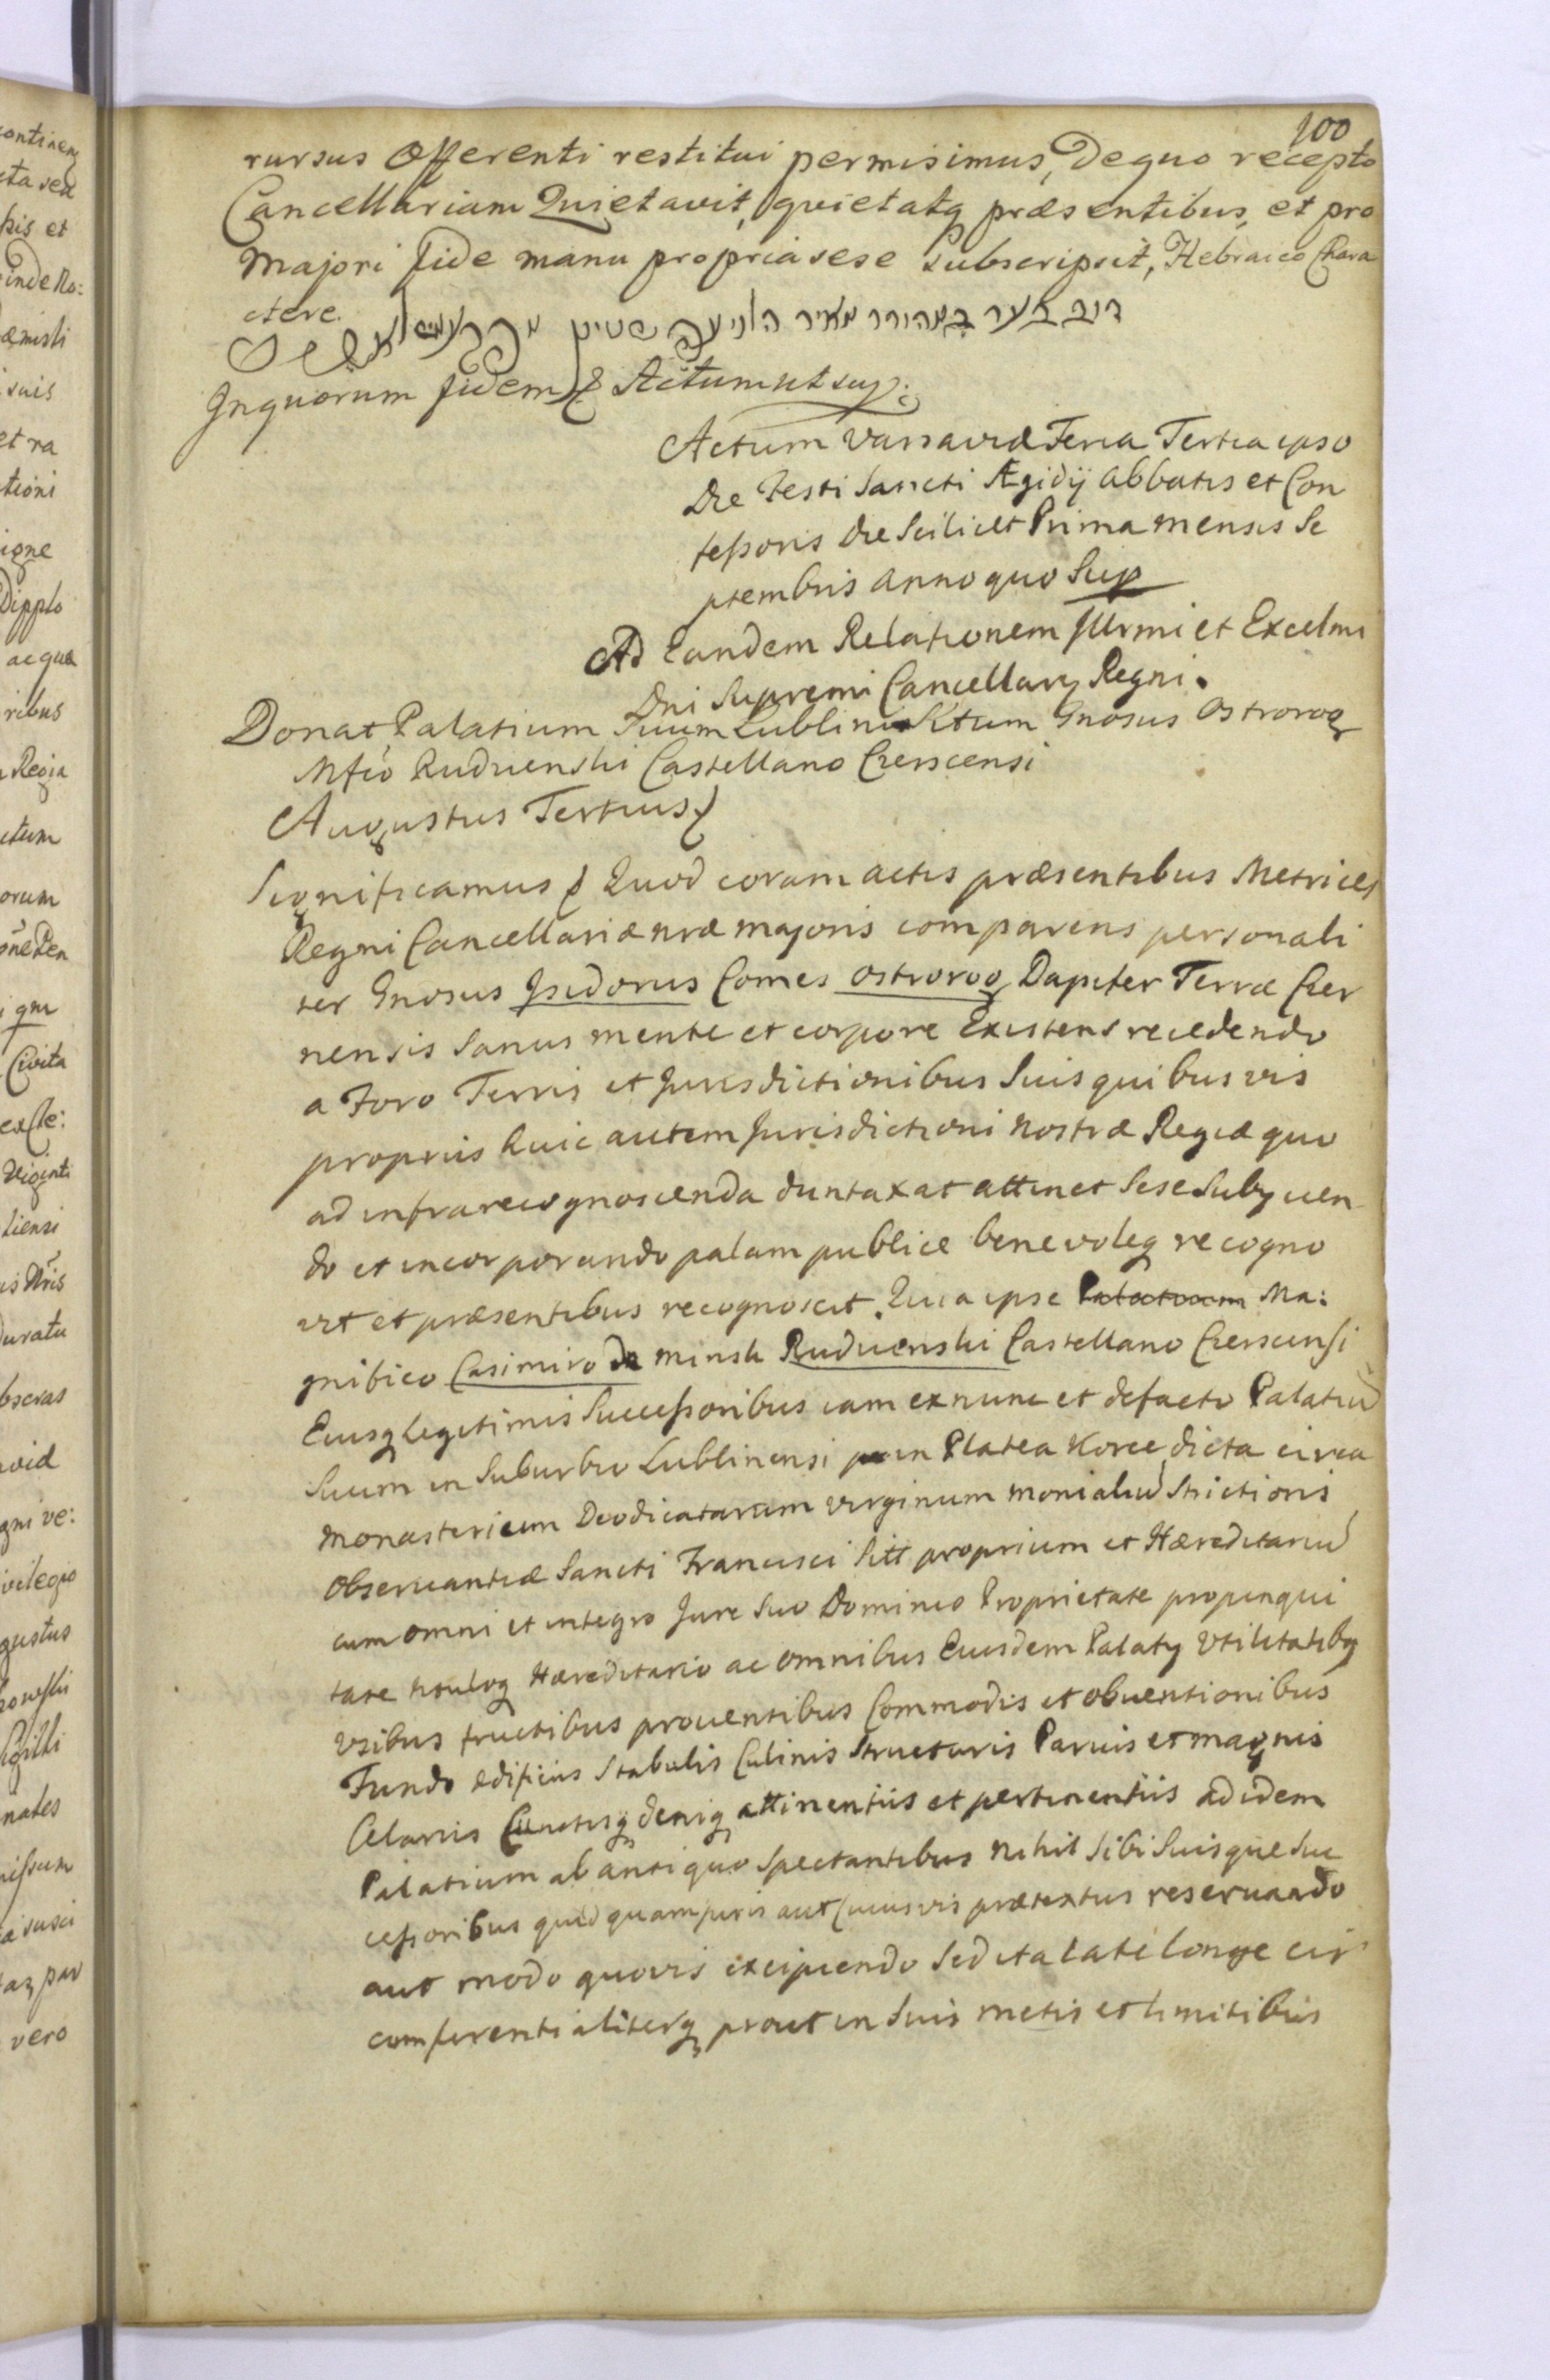 100
rursus Offerenti restitui permisimus, De quo recepto
Cancellariam Quietavit, quietatq præsentibus, et pro
Majori fide manu propria sese Subscripsit, Hebraico Chara
ctere.
דוב בער במהורר מאיר
Inquorum fidem Actum ut sup:
Actum Varsaviæ Feria Tertia ipso
Die Festi Sancti Ægidij Abbatis et Con
feßoris Die Scilicet Prima mensis Se
ptembris Anno quo Sup
Ad Eandem Relationem Illrmi et Excelmi
Dni Supremi Cancellarij Regni.
Donat Palatium Suum Lublini Situm Gnosus Ostrorog
Mfco Rudzienski Castellano Czerscensi
Augustus Tertius
Significamus Quod coram actis præsentibus Metrices
Regni Cancellariæ nræ majoris comparens personali
ter Gnosus Isidorus Comes Ostrorog Dapifer Terræ Czer
nensis Sanus mente et corpore Existens recedendo
a Foro Terris et Jurisdictionibus Suis quibusvis
propriis huic autem Jurisdictioni Nostræ Regiæ quo
ad infrarecognoscenda duntaxat attinet Sese Subijcien
do et incorporando palam publice benevoleq recogno
vit et præsentibus recognoscit. Quia ipse Palatium Ma:
gnifico Casimiro de Minsk Rudzienski Castellano Czerscensi
Eiusq Legitimis Succeßoribus iam ex nunc et defacto Palatiū
Suum in Suburbio Lublinensi in Platea Korce dicta circa
Monasterium Deodicatarum virginum monialiū Strictioris
Observantiæ Sancti Francisci Sitt proprium et Hæreditariū
cum omni et integro Jure Suo Dominio Proprietate propinqui
tate tituloq Hæreditario ac omnibus Eiusdem Palatij Utilitatibq
Usibus fructibus proventibus Commodis et obventionibus
Fundo ædificiis Stabulis Culinis Structuris Parvis et magnis
Celariis Cunctisq deniq attinentiis et pertinentiis ad idem
Palatium ab antiquo Spectantibus Nihil Sibi Suisque Suc
ceßoribus quidquam juris aut cuiusvis prætextus reservando
aut modo quovis excipiendo Sed ita late longe cir
comferentialiterq prout in Suis metis et limitibus